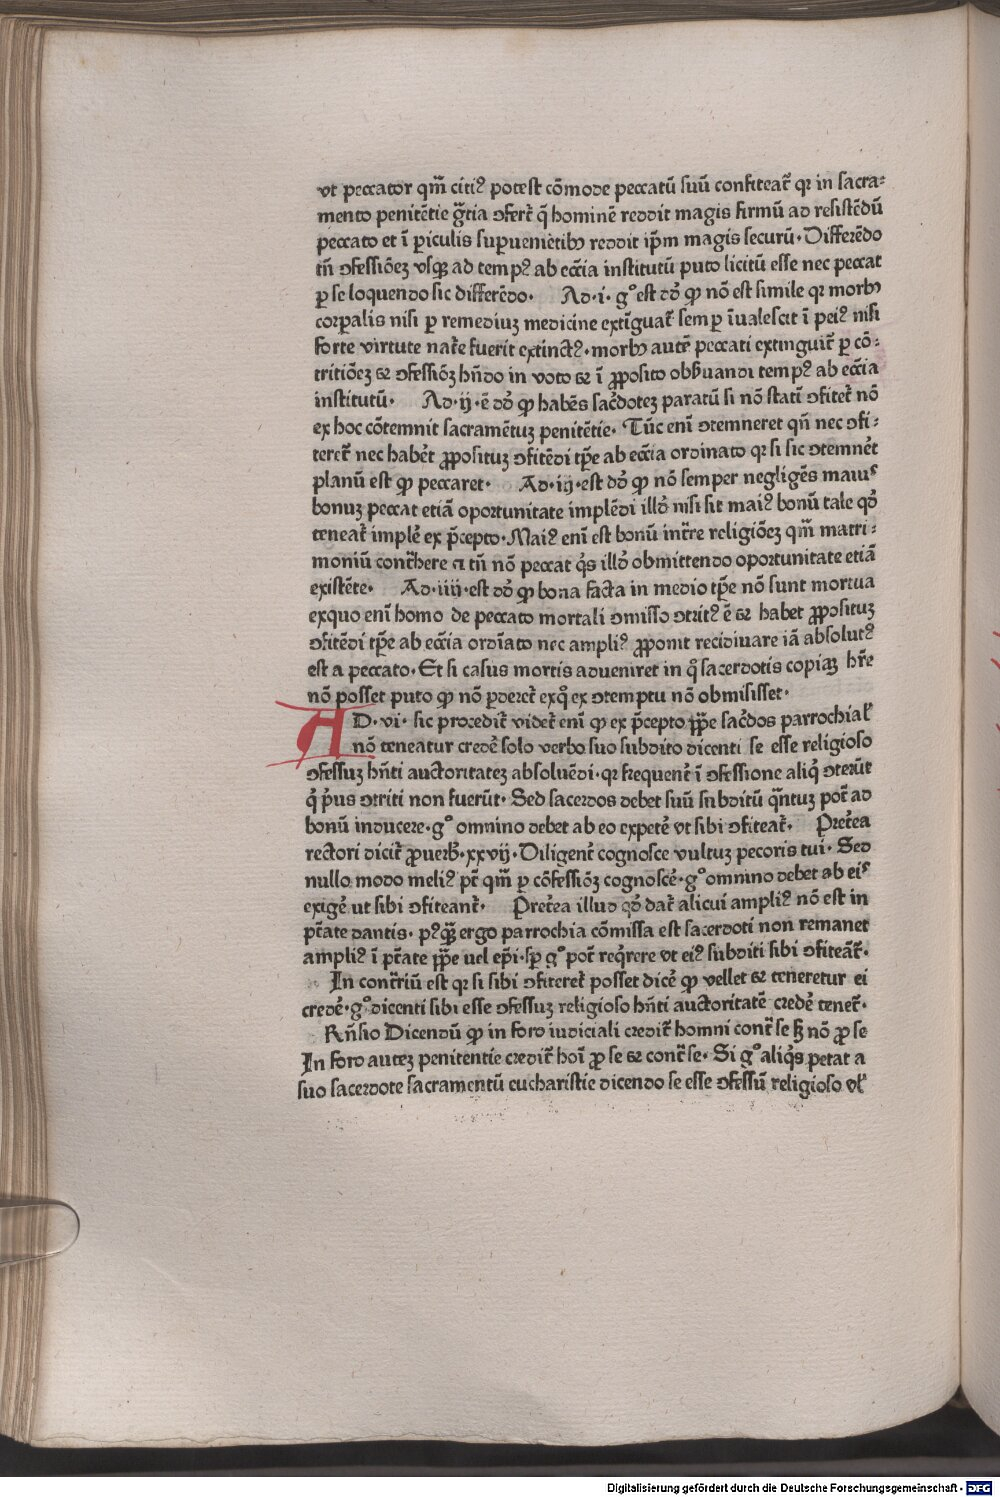 vt peccator qm̄ citiꝰ potest cōmode peccatū suū confiteat᷑ qꝛ in sacra⸗
mento penitētie gr̄tia ↄfert᷑ q̄ hominē reddit magis firmū ad resistēdū
peccato et ī periculis superueniētibꝫ reddit ip̄m magis securū. Differēdo
tn̄ ↄfessiōeꝫ vsqꝫ ad tempꝰ ab ecc̄ia institutū puto licitū esse nec peccat
per se loquendo sic differēdo. Ad .i. gͦ est dd̄ ꝙ nō est simile qꝛ morbꝰ
corꝑalis nisi ꝑ remediuꝫ medicine extīguat᷑ semꝑ īualescit ī peiꝰ nisi
forte virtute nat᷑e fuerit extinctꝰ. morbꝰ autē peccati extinguit᷑ ꝑ cō⸗
tritiōeꝫ ⁊ ↄfessiōꝫ hn̄do in voto ⁊ ī ꝓposito obẜuandi tempꝰ ab ecc̄ia
institutū. Ad .ij. ē dd̄ ꝙ habēs sac̄dotez paratū si nō statī ↄfitet᷑ nō
ex hoc cōtemnit sacramētuꝫ penitētie. Tūc eni ↄtemneret qn̄ nec ↄfi⸗
teret᷑ nec habēt ꝓposituꝫ ↄfitēdi tp̄e ab ecc̄ia ordinato qꝛ si sic ↄtemnēt
planū est ꝙ peccaret. Ad .iij. est dd̄ ꝙ nō semper negligēs maiuˢ
bonuꝫ peccat etiā oportunitate implēdi illd̄ nisi sit maiꝰ bonū tale qd̄
teneat᷑ implē ex p̄cepto. Maiꝰ enī est bonū int᷑re religiōeꝫ qm̄ matri⸗
moniū cont᷑here ⁊ tn̄ nō peccat qͥs illd̄ obmittendo oportunitate etiā
existēte. Ad .iiij. est dd̄ ꝙ bona facta in medio tp̄e nō sunt mortua
exquo enī homo de peccato mortali ↄmisso ↄtritꝰ ē ⁊ habet ꝓposituꝫ
ↄfitēdi tp̄e ab ecc̄ia ordīato nec ampliꝰ ꝓponit recidiuare iā absolutꝰ
est a peccato. Et si casus mortis adueniret in qͦ sacerdotis copiaꝫ hr̄e
nō posset puto ꝙ nō ꝑderet᷑ exqͦ ex ↄtemptu nō obmisisset.
AD .vi. sic procedit᷑ videt᷑ enī ꝙ ex p̄cepto pp̄e sac̄dos parrochial̄
nō teneatur credē solo verbo suo subdito dicenti se esse religioso
ↄfessuꝫ hn̄ti auctoritateꝫ absoluēdi. qꝛ frequent᷑ ī ↄfessione aliqͥ ↄterūt᷑
qͥ pͥus ↄtriti non fuerūt. Sed sacerdos debet suū subditū qͣntuꝫ pot᷑ ad
bonū inducere. gͦ omnino debet ab eo expetē vt sibi ↄfiteat᷑. Pret᷑ea
rectori dicit᷑ ꝓuerb̄. xxvij. Diligent᷑ cognosce vultuꝫ pecoris tui. Sed
nullo modo meliꝰ pt̄ qm̄ ꝑ cōfessiōꝫ cognoscē. gͦ omnino debet ab eiˢ
exigē ut sibi ↄfiteant᷑. Pret᷑ea illud qd̄ dat᷑ alicui ampliꝰ nō est in
pt̄ate dantis. pꝰqͣꝫ ergo parrochia cōmissa est sacerdoti non remanet
ampliꝰ ī pt̄ate pp̄e uel ep̄i. sꝑ gͦ pot᷑ reqͥrere vt eiꝰ subditi sibi ↄfiteāt᷑.
In cont᷑riū est qꝛ si sibi ↄfiteret᷑ posset dicē ꝙ vellet ⁊ teneretur ei
credē. gͦ dicenti sibi esse ↄfessuꝫ religioso hn̄ti auctoritatē credē tenet᷑.
Rn̄sio Dicendū ꝙ in foro iudiciali credit᷑ homni cont᷑ se sꝫ nō ꝓ se
In foro auteꝫ penitentie credit᷑ hoī ꝓ se ⁊ cont᷑ se. Si gͦ aliqͥs petat a
suo sacerdote sacramentū eucharistie dicendo se esse ↄfessū religioso vl̄
Digitalisierung gefördert durch die Deutsche Forschungsgemeinschaft - DFG